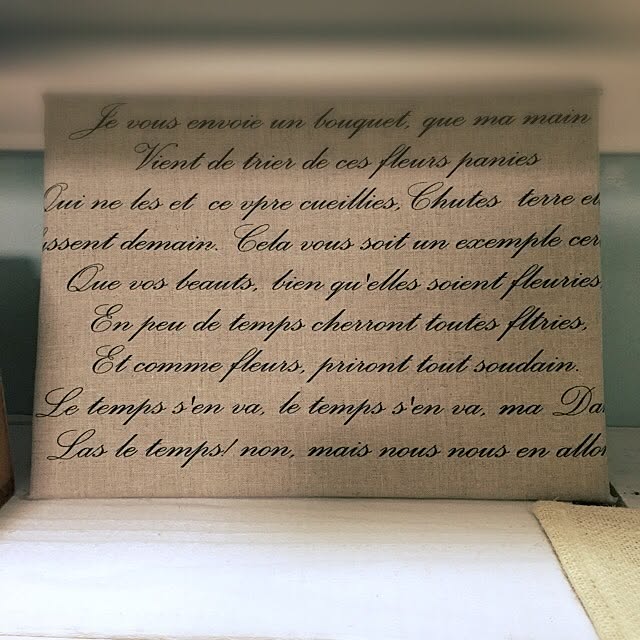 Je vous envoie un bouquet, que ma main
Vient de trier de ces fleurs panies
Qui ne les et ce vpre cueillies, Chutes terre et
ssent demain. Cela vous soit un exemple cer
Que vos beauts, bien qu'elles soient fleuries,
En peu de temps cherront toutes fltries,
Et comme fleurs, priront tout soudain.
Le temps s'en va, le temps s'en va, ma Da
Las le temps! non, mais nous nous en allon